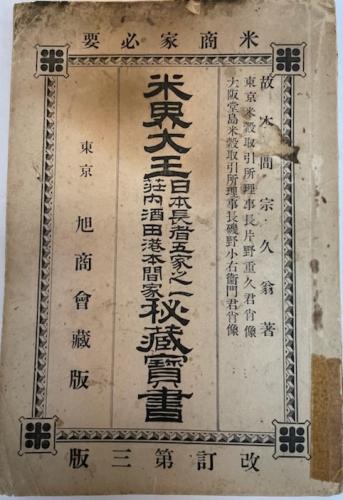 米商家必要
故本間宗久翁著
東京米穀取引所理事長片野重久君肖像
大阪堂島米穀取引所理事長磯野小右衛門君肖像
米界大王日本長者五家之一荘内酒田港本間家秘藏寶書
東京 旭商會藏版
改訂第三版